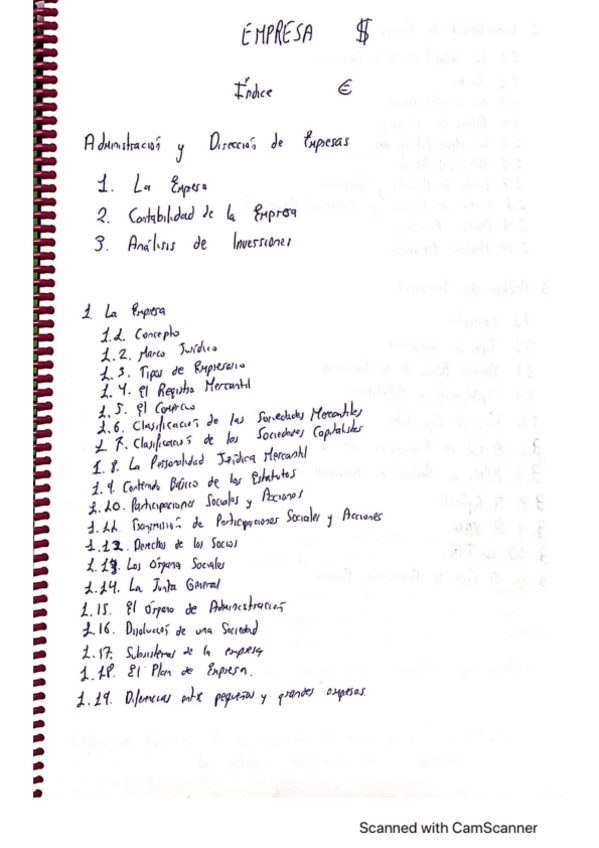 EMPRESA $
Índice €
Administración y Dirección de Empresas
1. La Empresa
2. Contabilidad de la Empresa
3. Análisis de Inversiones
1. La Empresa
1.1. Concepto
1.2. Marco Jurídico
1.3. Tipos de Empresario
1.4. El Registro Mercantil
1.5. El Comercio
1.6. Clasificación de las Sociedades Mercantiles
1.7. Clasificación de las Sociedades Capitalistas
1.8. La Personalidad Jurídica Mercantil
1.9. Contenido Básico de los Estatutos
1.10. Participaciones Sociales y Acciones
1.11. Transmisión de Participaciones Sociales y Acciones
1.12. Derechos de los Socios
1.13. Los Órganos Sociales
1.14. La Junta General
1.15. El Órgano de Administración
1.16. Disolución de una Sociedad
1.17. Subsistemas de la empresa
1.18. El Plan de Empresa.
1.19. Diferencias entre pequeñas y grandes empresas.
Scanned with CamScanner